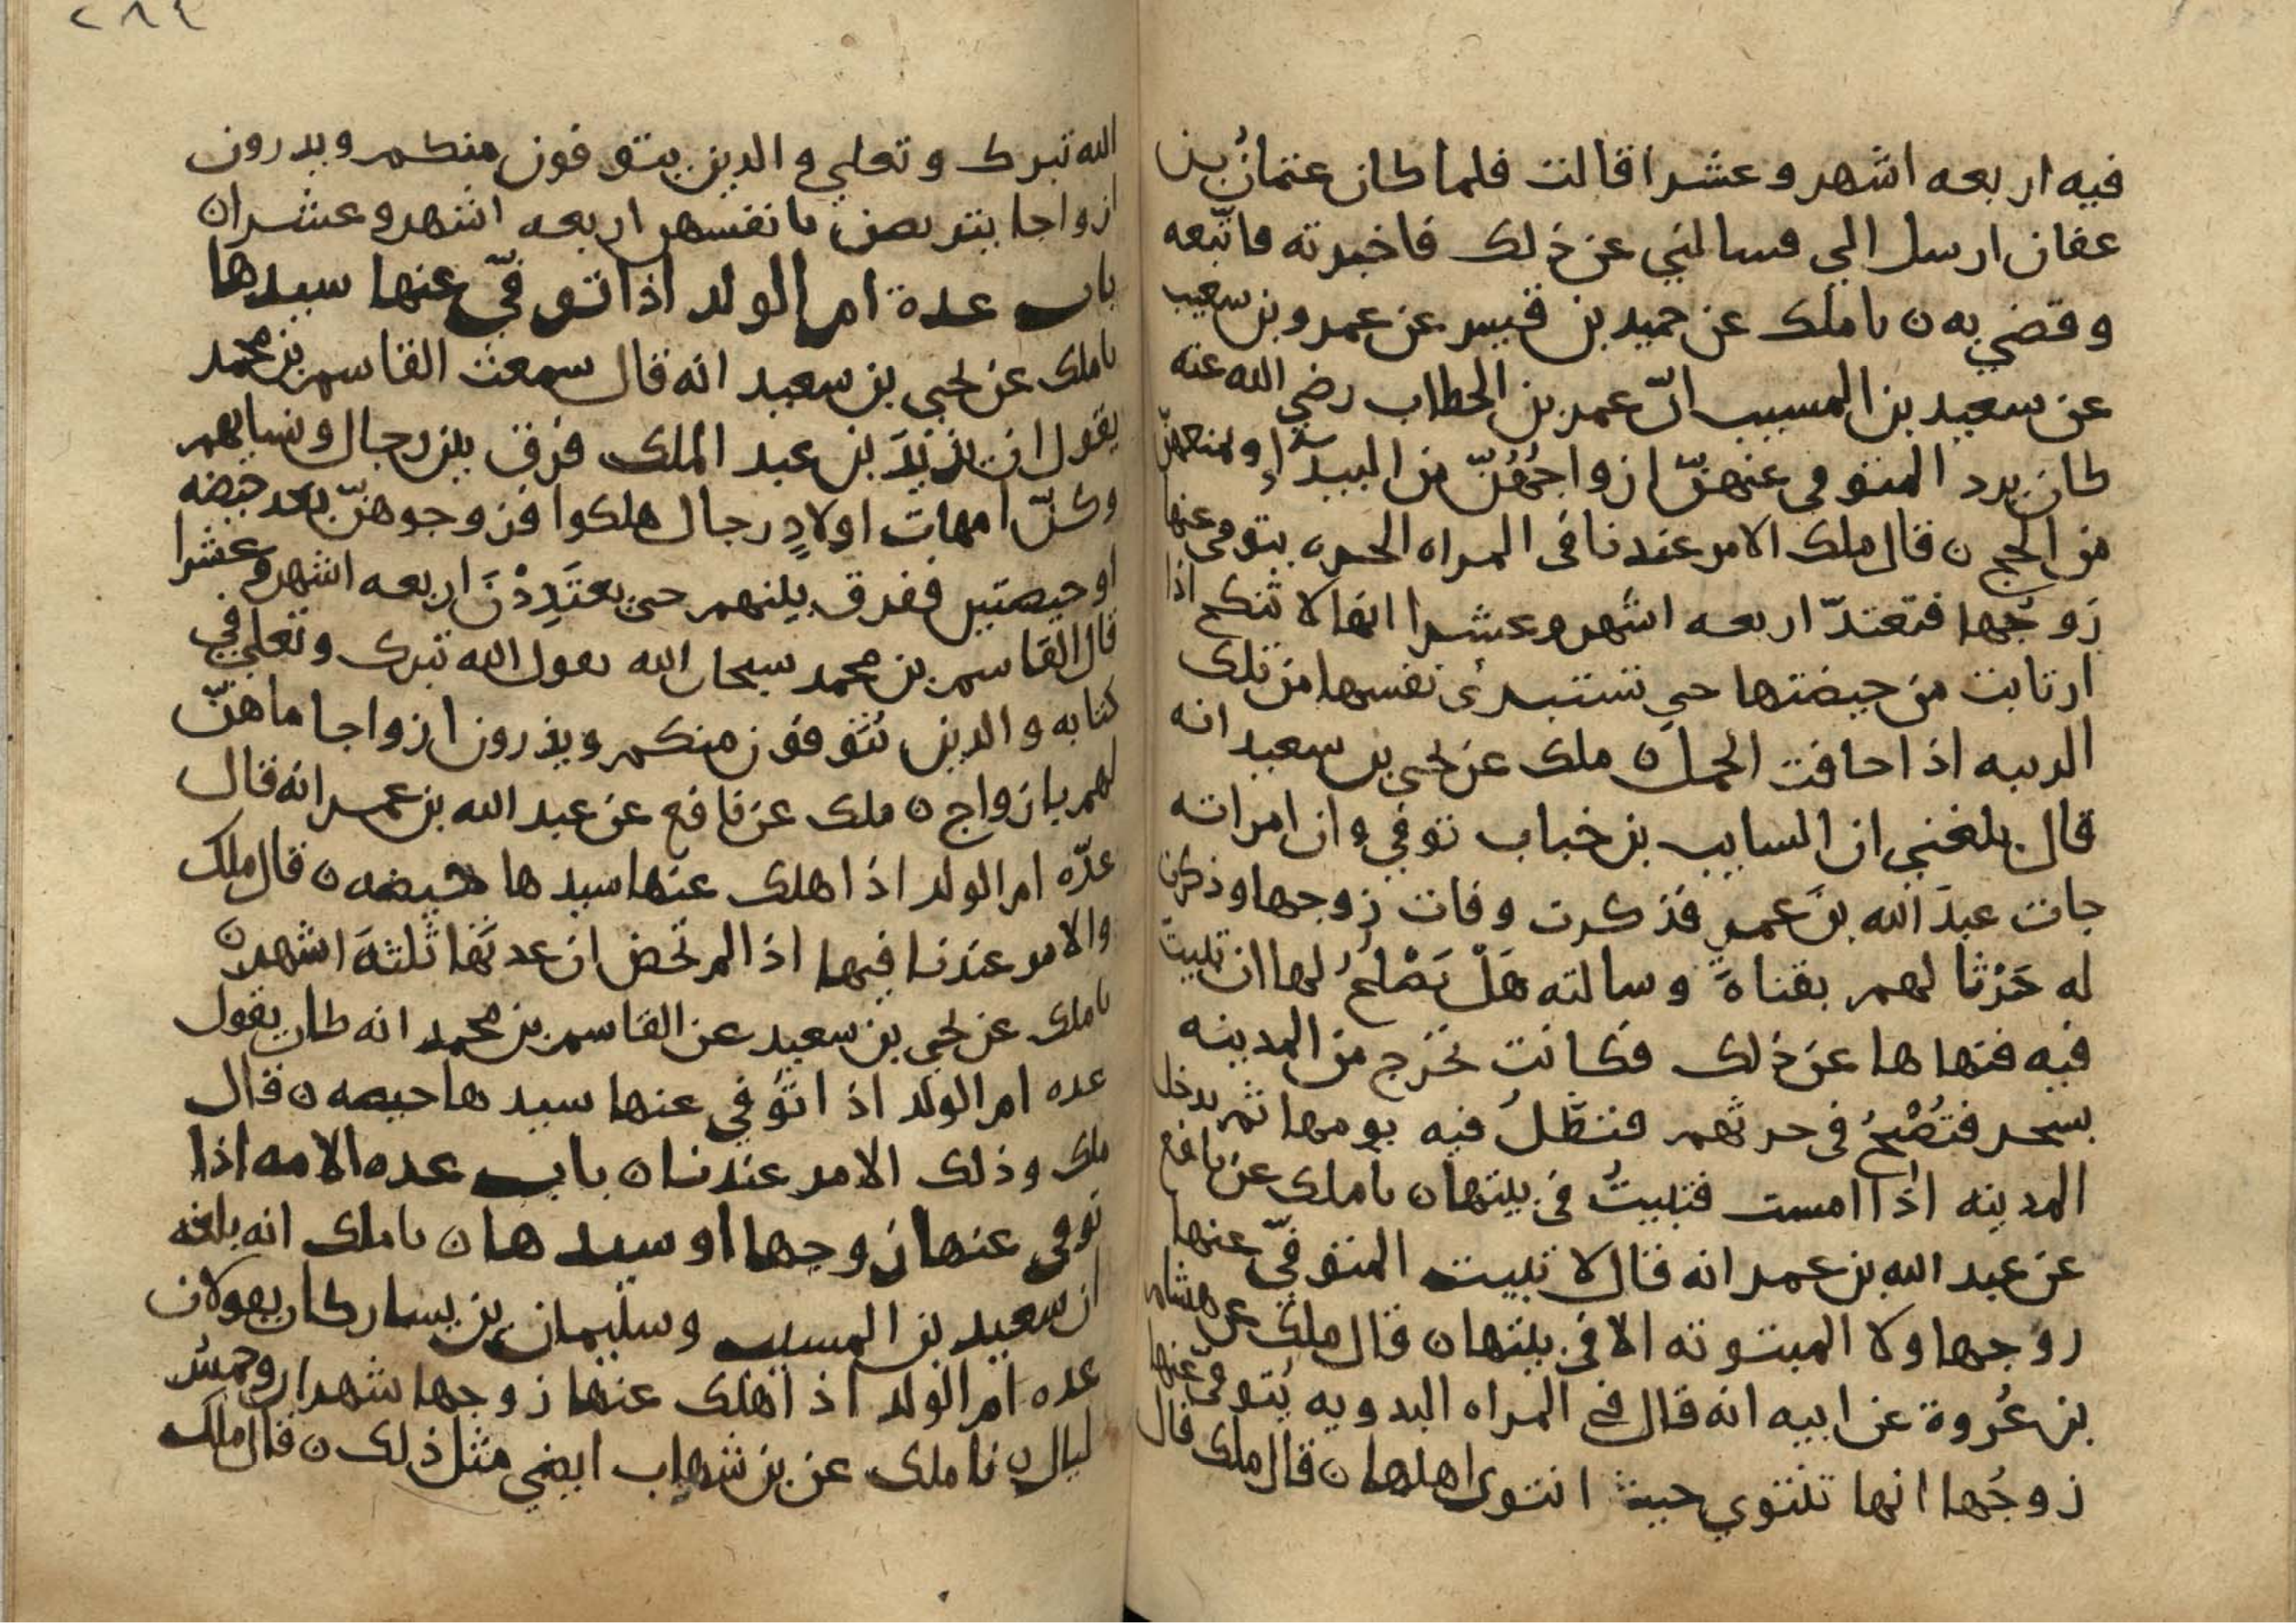 فيه اربعه اشهر وعشرا قالت فلما كان عثمانُ بن
عفان ارسل الي فسالني عن ذلك فاخبرته فاتّبعه
وقضي به ن نا ملك عن حميد بن قيس عن عمرو بن شعيب
عن سعيد بن المسيب انّ عمر بن الخطاب رضي الله عنه
كان يرد المتوفي عنهنّ ازواجُهُنّ من البيدآء ويمنعهنّ
من الحج ن قال ملك الامر عندنا في المراه الحره يتوفي عنها
زوجُها فتعتدّ اربعه اشهر وعشرا انها لا تنكح اذا
ارتابت من حيضتها حتي تستبرئ نفسها من تلك
الريبه اذا خافت الحمل ن ملك عن يحيي بن سعيد انه
قال بلغني ان السايب بن خباب توفي وان امراته
جات عبدَ الله بنَ عمر فذكرت وفات زوجها وذكرت
له حَرْثا لهم بقناةَ وسالته هَلْ يَصْلحُ لها ان تبيت
فيه فنهاها عن ذلك فكانت تخرج من المدينه
بسحر فتُصْبحُ في حرثهم فتظلُ فيه يومها ثم تدخل
المدينه اذا امست فتبيتُ في بيتها ن نا ملك عن نافع
عن عبد الله بن عمر انه قال لا تبيت المتوفيّ عنها
زوجها ولا المبتوته الا في بيتها ن قال ملك عن هشام
بن عُروة عن ابيه انه قال في المراه البدويه يُتوفيّ عنها
زوجُها انها تنتوي حيث انتوي اهلها ن قال ملك قال
٢٨٤
الله تبرك وتعلي والذين يتوفون منكم ويذرون
ازواجا يتربصن بانفسهن اربعه اشهر وعشرا ن
باب عدة ام الولد اذا توفيّ عنها سيدها
نا ملك عن يحيي بن سعيد انه قال سمعت القاسم بن محمد
يقول ان يزيدَ بن عبد الملك فرق بين رجال ونسايهم
وكنّ امهات اولادٍ رجال هلكوا فتزوجوهنّ بعد حيضه
او حيضتين ففرق بينهم حتي يعتَدِدْنَ اربعه اشهر وعشرا
قال القاسم بن محمد سبحان الله يقول الله تبرك وتعلي في
كتابه والذين يُتوفون منكم ويذرون ازواجا ما هنّ
لهم بازواج ن ملك عن نافع عن عبد الله بن عمر انه قال
عدّه ام الولد اذا هلك عنها سيدها حيضه ن قال ملك
والامر عندنا فيها اذا لم تحض ان عدتَها ثلثةَ اشهر ن
نا ملك عن يحيي بن سعيد عن القاسم بن محمد انه كان يقول
عده ام الولد اذا توُفي عنها سيدها حيضه ن قال
ملك وذلك الامر عندنا ن باب عده الامه اذا
توفي عنها زوجها او سيدها ن نا ملك انه بلغه
ان سعيد بن المسيب وسليمان بن يسار كان يقولان
عده ام الولد اذا هلك عنها زوجها شهران وخمسُ
ليال ن نا ملك عن بن شهاب ايضي مثل ذلك ن قال ملك